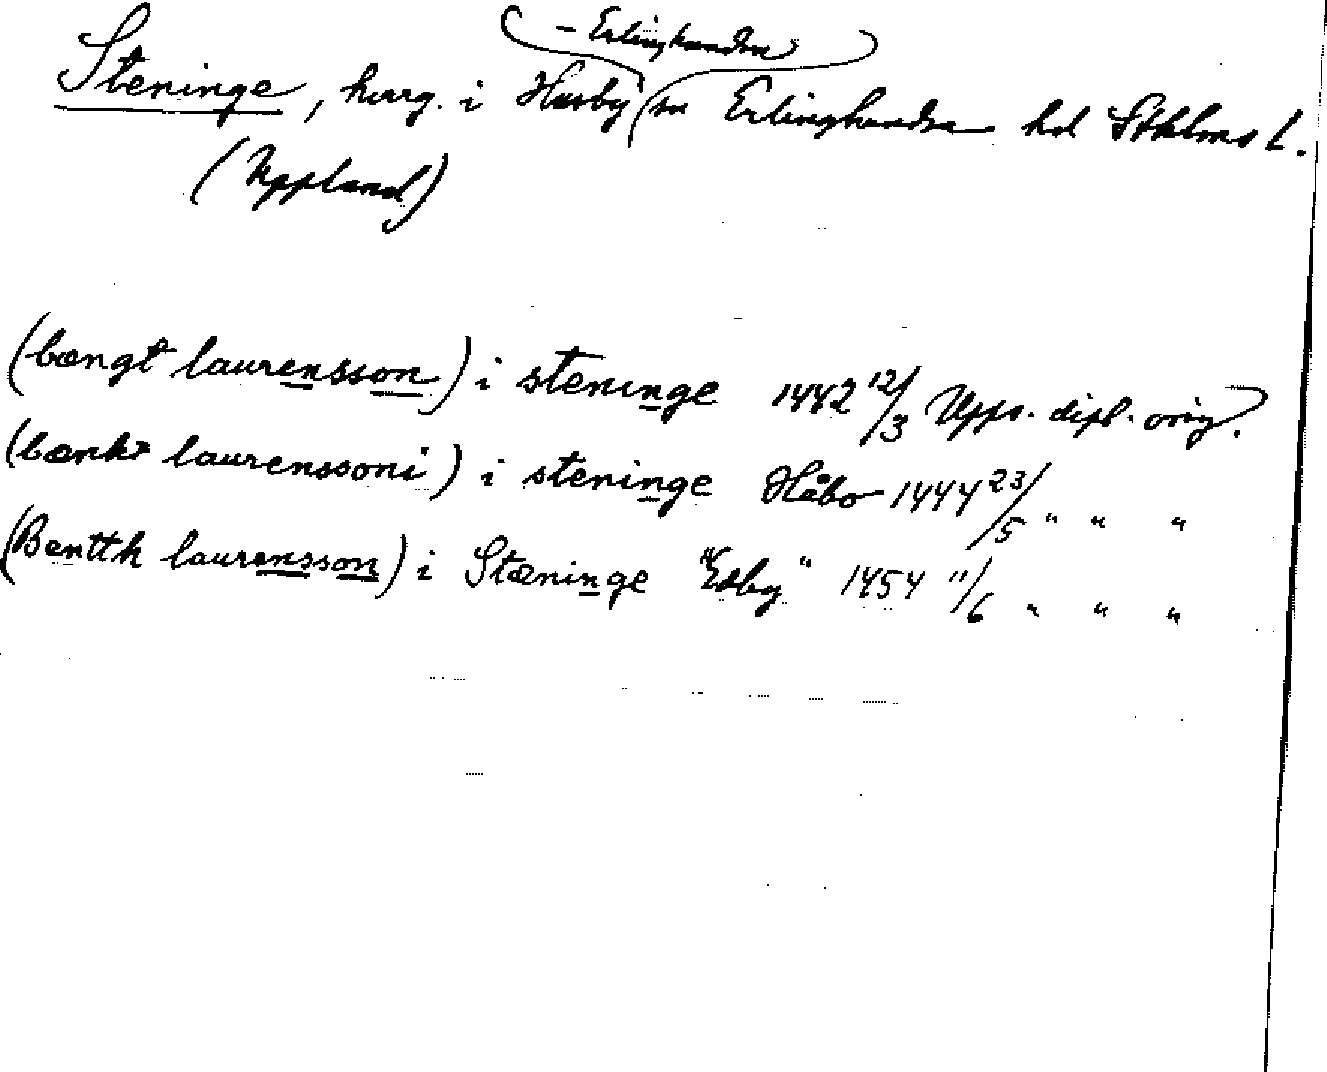 - Erlinghundra
Steninge, herrg. i Husby sn Erlinghundra hd Sthlms l.
(Uppland)
(bængt laurensson) i steninge 1442 12/3 Upps. dipl. orig.
(bænkt laurenssoni) i steninge Håbo 1444 23/5 " " "
(Bentth laurensson) i Stæninge "Edby" 1454 11/6 " " "